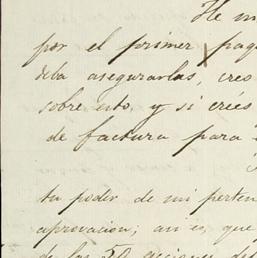 He
por el primer paq
deba asegurarlas, creo
sobre esto, y si crées
de factura para
tu poder de mi perten
aprovacion; asi es, que
de las 50 acciones del